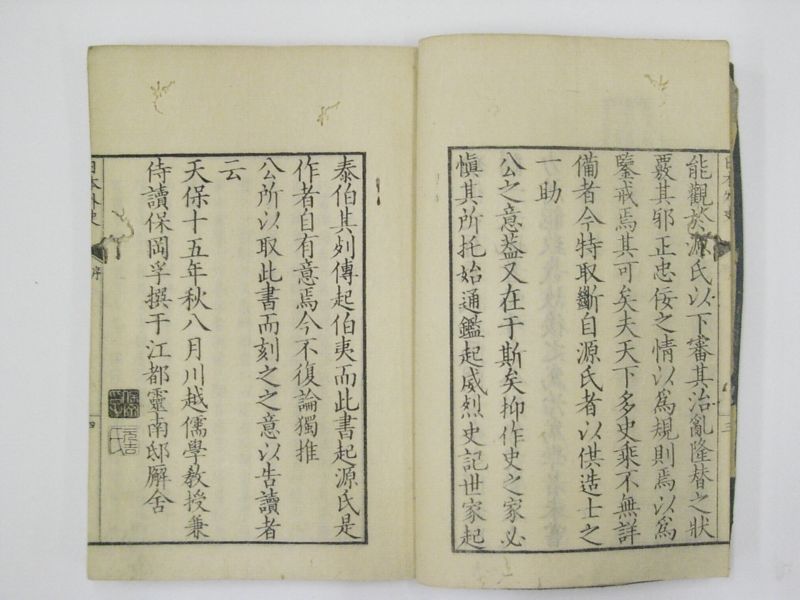 能觀於源氏以下審其治亂隆替之狀
覈其邪正忠佞之情以為規則焉以為
鑒戒焉其可矣夫天下多史乘不無詳
備者今特取斷自源氏者以供造士之
一助
公之意蓋又在于斯矣抑作史之家必
慎其所托始通鑑起威烈史記世家起
泰伯其列傳起伯夷而此書起源氏是
作者自有意焉今不復論獨推
公所以取此書而刻之之意以告讀者
云
天保十五年秋八月川越儒學教授兼
侍讀保岡孚撰于江都靈南邸廨舍
日本外史
四